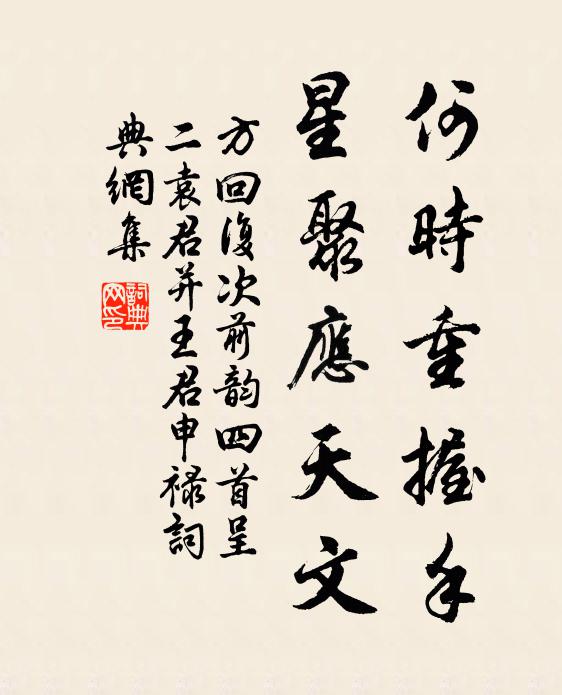 何時重握手
星聚應天文
方回復次前韵四首呈
二袁君并王君申禄詞
典網集
詞典
网印